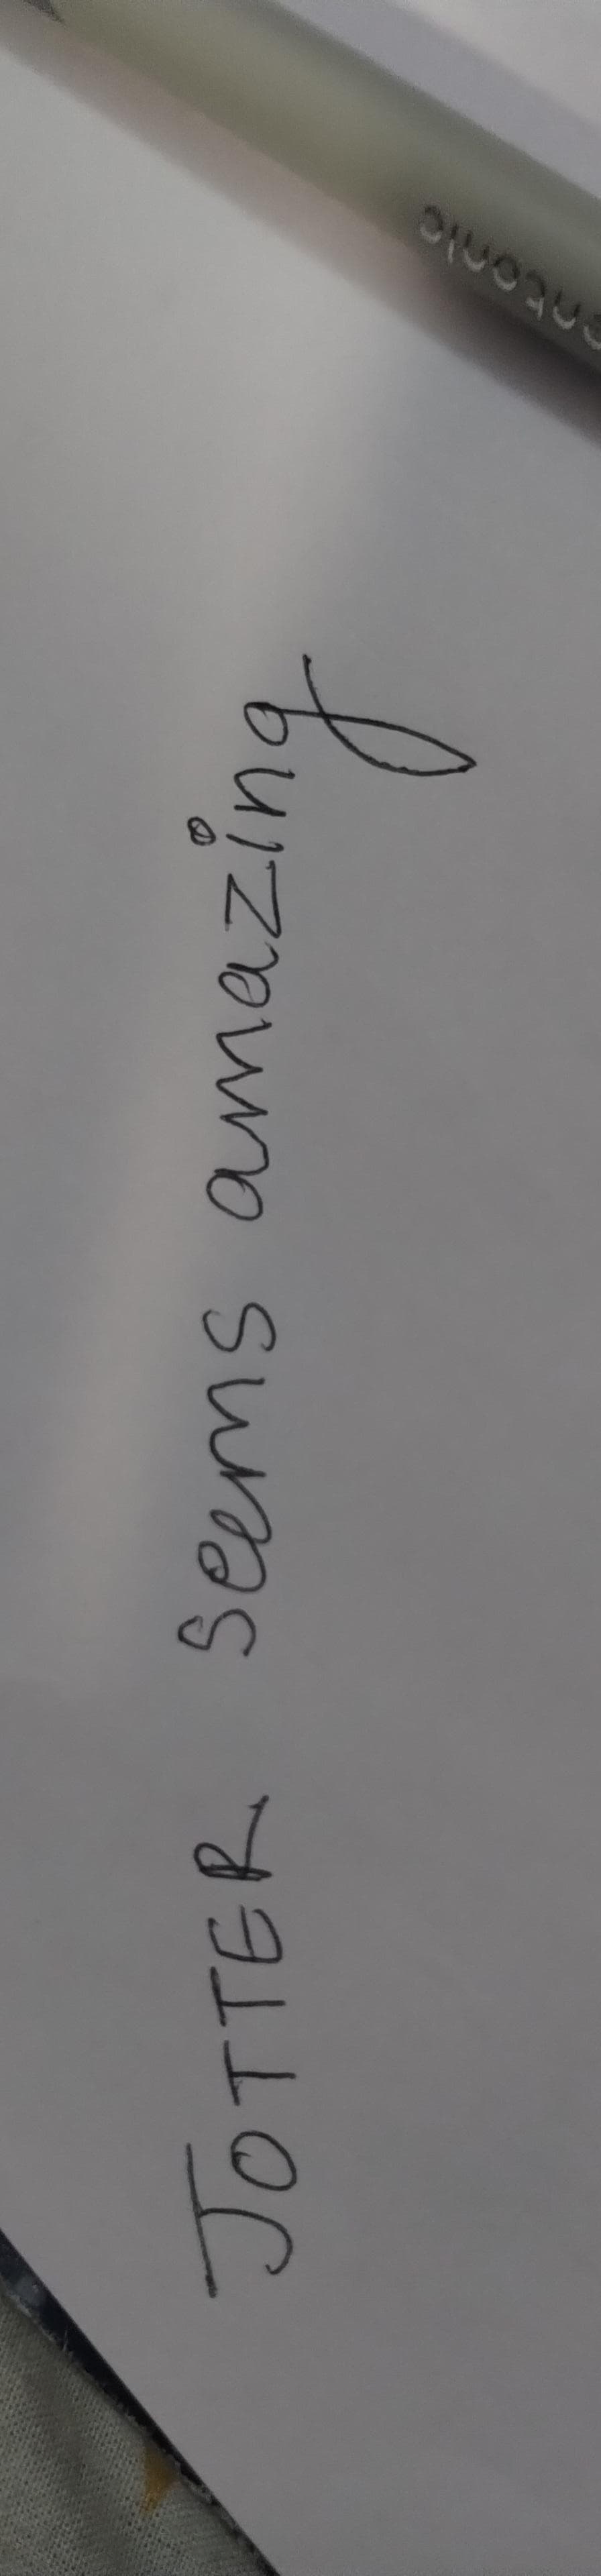 JOTTER seems amazing
entonic